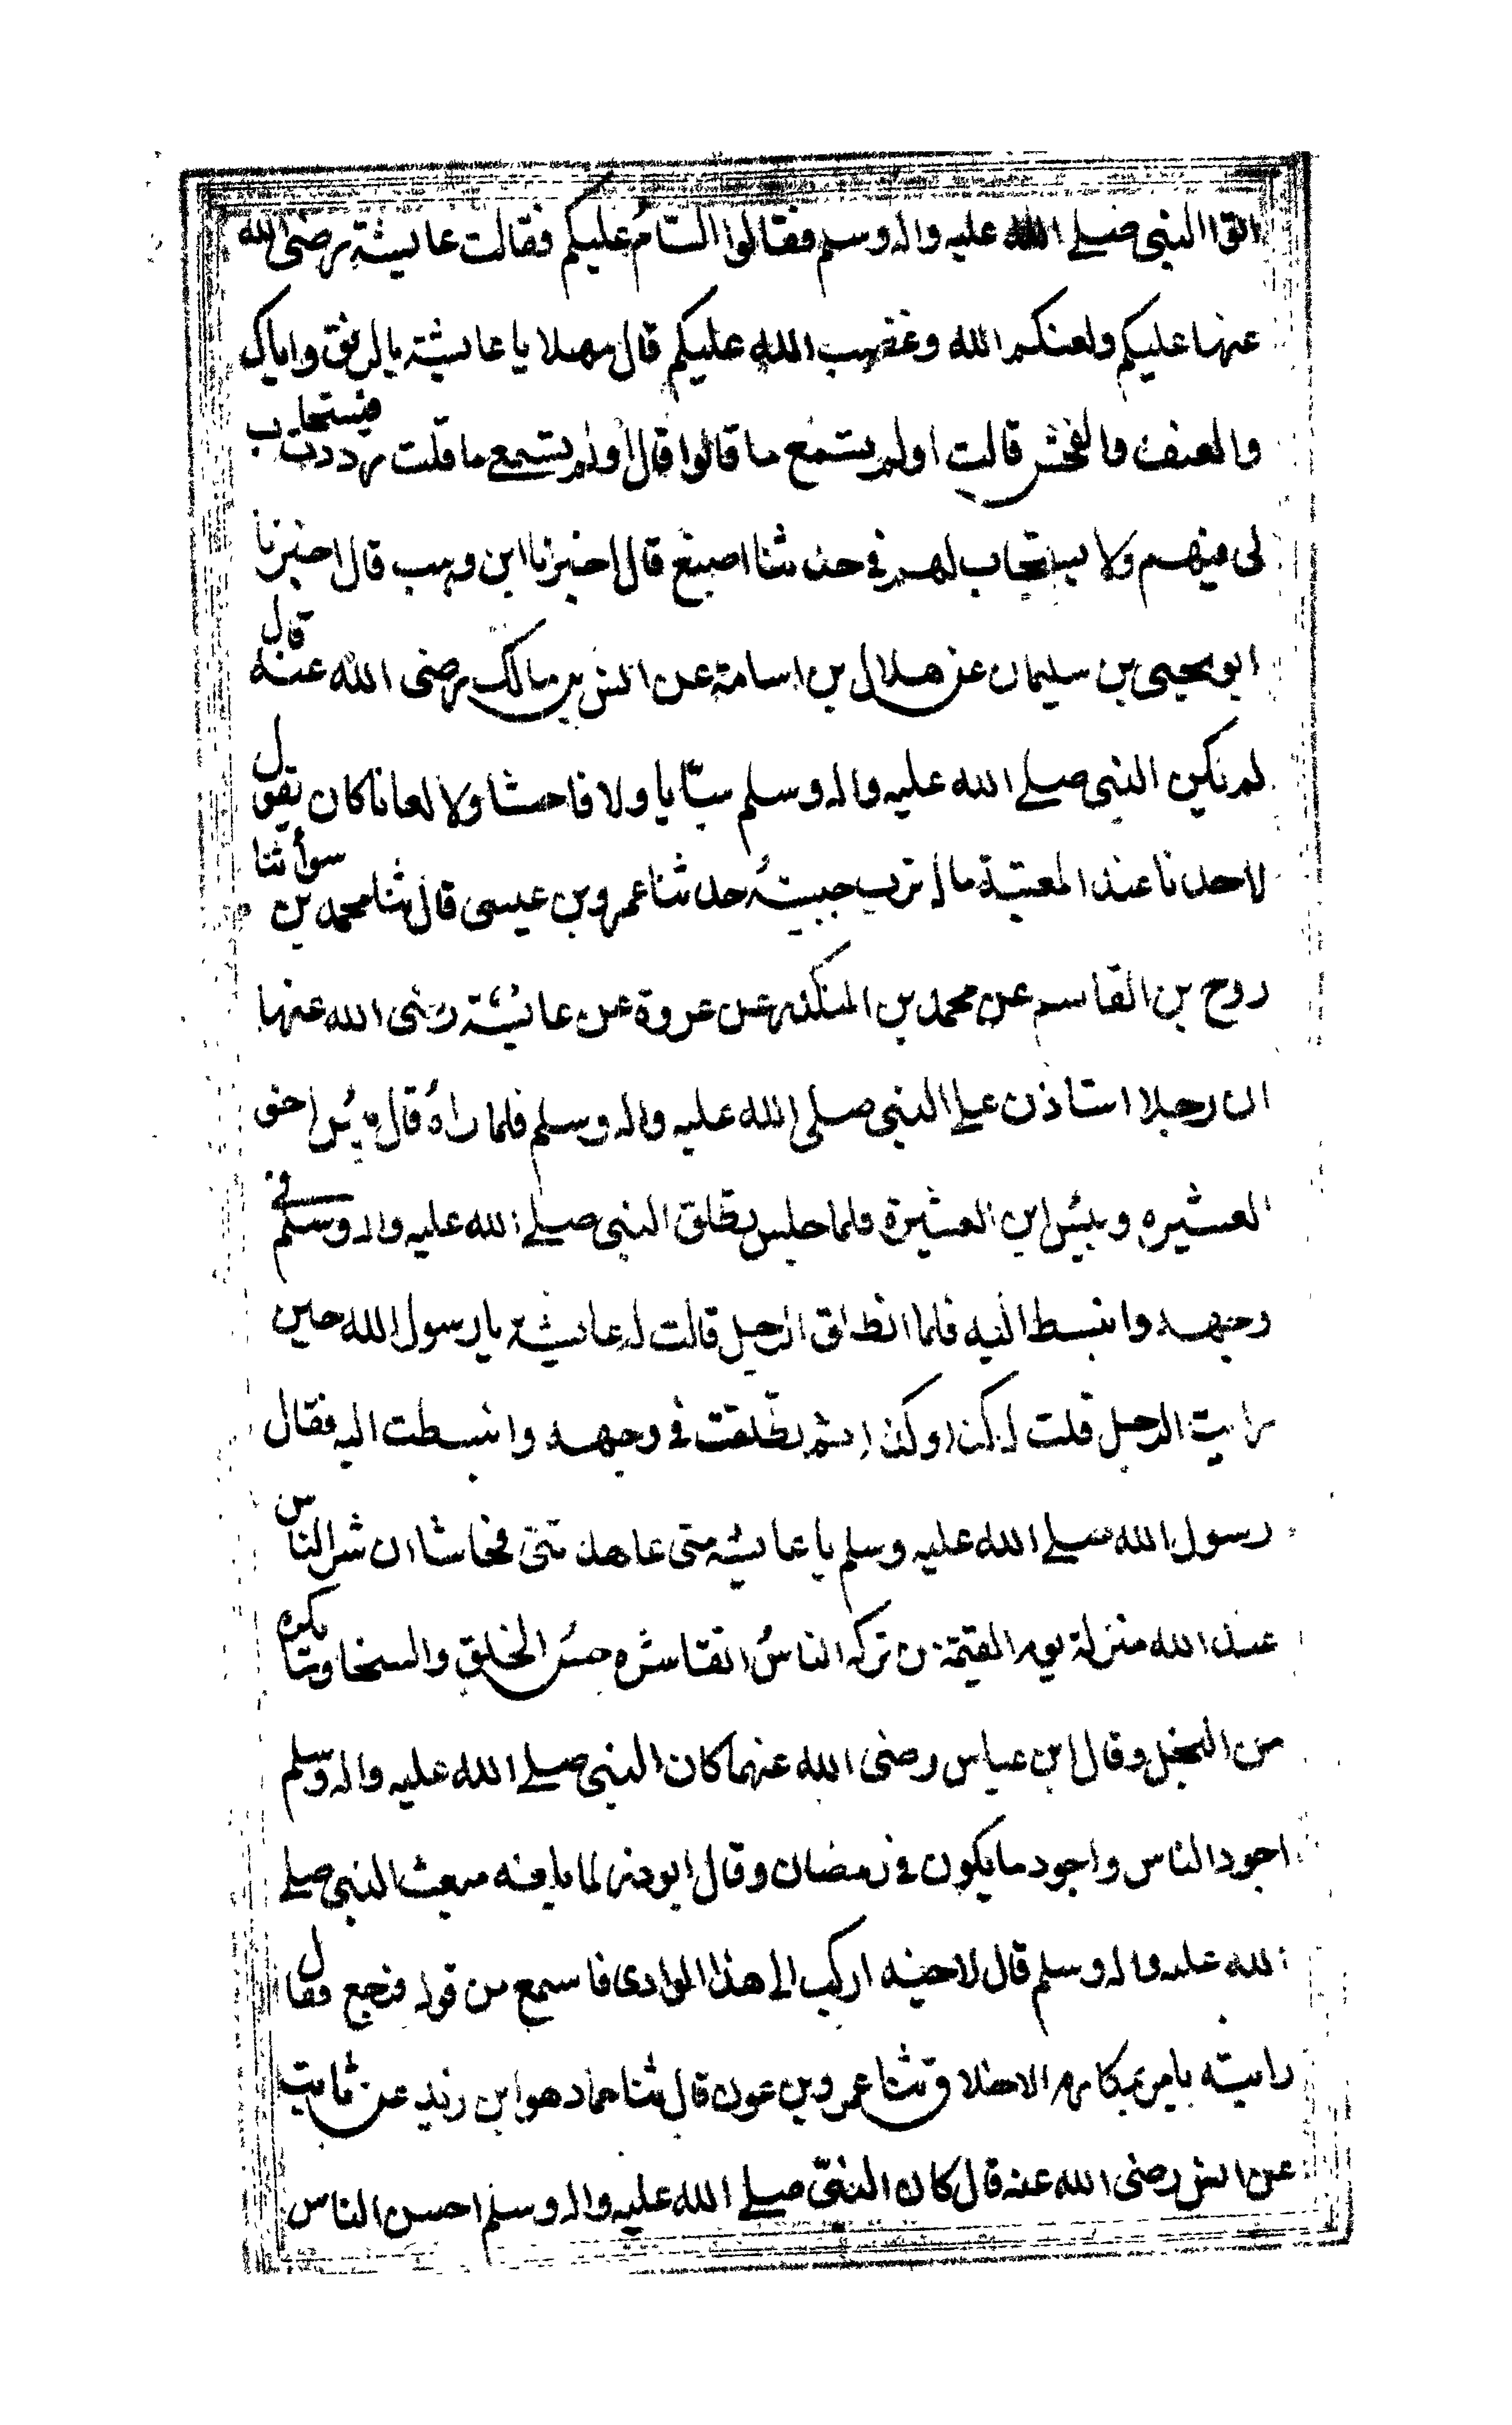 اتوا النبى صلى الله عليه واله وسلم فقالوا السّامُ عليكم فقالت عايشة رضى الله
عنها عليكم ولعنكم الله وغضب الله عليكم قال مهلا يا عايشة بالرفق واياك
والعنف والفحش قالت اولم تستمع ما قالوا قال اولم تستمعى ما قلت رددت فيستجاب
لى فيهم ولا يستجاب لهم فى حدثنا اصبغ قال اخبرنا ابن وهب قال اخبرنا
ابو يحيى بن سليمان عن هلال بن اسامة عن انس بن مالك رضى الله عنه قال
لم يكن النبى صلى الله عليه واله وسلم سبّابا ولا فاحشا ولا لعانا كان يقول
لاحدنا عند المعتبة ماله ترب جبينهُ حدثنا عمرو بن عيسى قال ثنا محمد بن سوأ ثنا
روح بن القاسم عن محمد بن المنكدر عن عروة عن عائشة رضى الله عنها
ان رجلا استاذن على النبى صلى الله عليه واله وسلم فلما راهُ قال بئس اخو
العشيره وبئس ابن العشيرة فلما جلس تطلق النبى صلى الله عليه واله وسلم فى
وجهه وانبسط اليه فلما انطلق الرجل قالت له عايشة يا رسول الله حين
رايت الرجل قلت له كذا وكذا ثم تطلقت فى وجهه وانبسطت اليه فقال
رسول الله صلى الله عليه وسلم يا عايشة متى عاهدتنى فحاشا ان شر الناس
عند الله منزلة يوم القيمة من تركه الناسُ اتقا شره حسن الخلق والسخا وما يكره
من البخل وقال ابن عباس رضى الله عنهما كان النبى صلى الله عليه واله وسلم
اجود الناس واجود ما يكون فى رمضان وقال ابو ذر لما بلغه مبعث النبى صلى
الله عليه واله وسلم قال لاخيه اركب الى هذا الوادى فاسمع من قوله فرجع فقال
رايته يامر بمكارم الاخلاق ثنا عمرو بن عون قال ثنا حماد هو ابن زيد عن ثابت
عن انس رضى الله عنه قال كان النبىّ صلى الله عليه واله وسلم احسن الناس